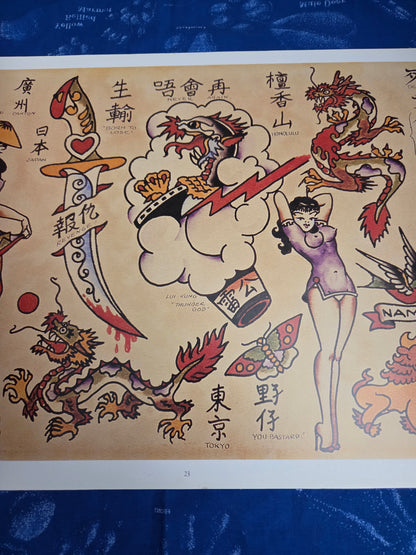 廣州
CANTON
日本
JAPAN
生輸
"BORN TO
LOSE"
唔會再
NEVER AGAIN
檀香山
HONOLULU
報仇
REVENGE
LUI KUNG
"THUNDER
GOD"
NAM
東京
TOKYO
野仔
"YOU BASTARD!"
23